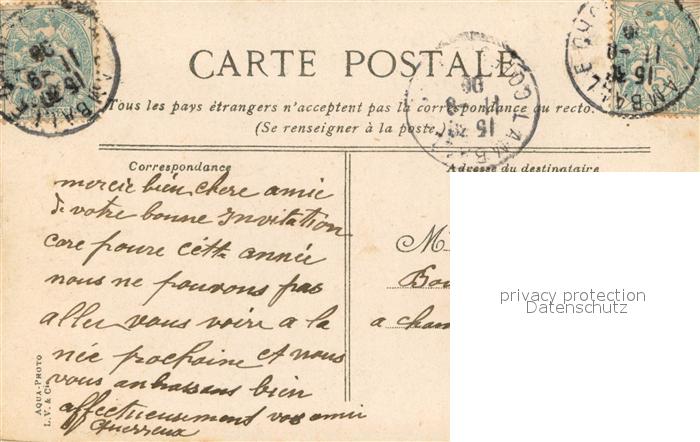 CARTE POSTALE
Tous les pays étrangers n'acceptent pas la correspondance au recto.
(Se renseigner à la poste.)
Correspondance
Adresse du destinataire
mercie bien chere amie
de votre bonne invitation
care poure cette année
nous ne pouvons pas
aller vous voire a la
née prochaine et nous
vous anbrassans bien
affectueusement vos amie
M
Bou
a cham
privacy protection
Datenschutz
AQUA-PHOTO
L. V. & Cie